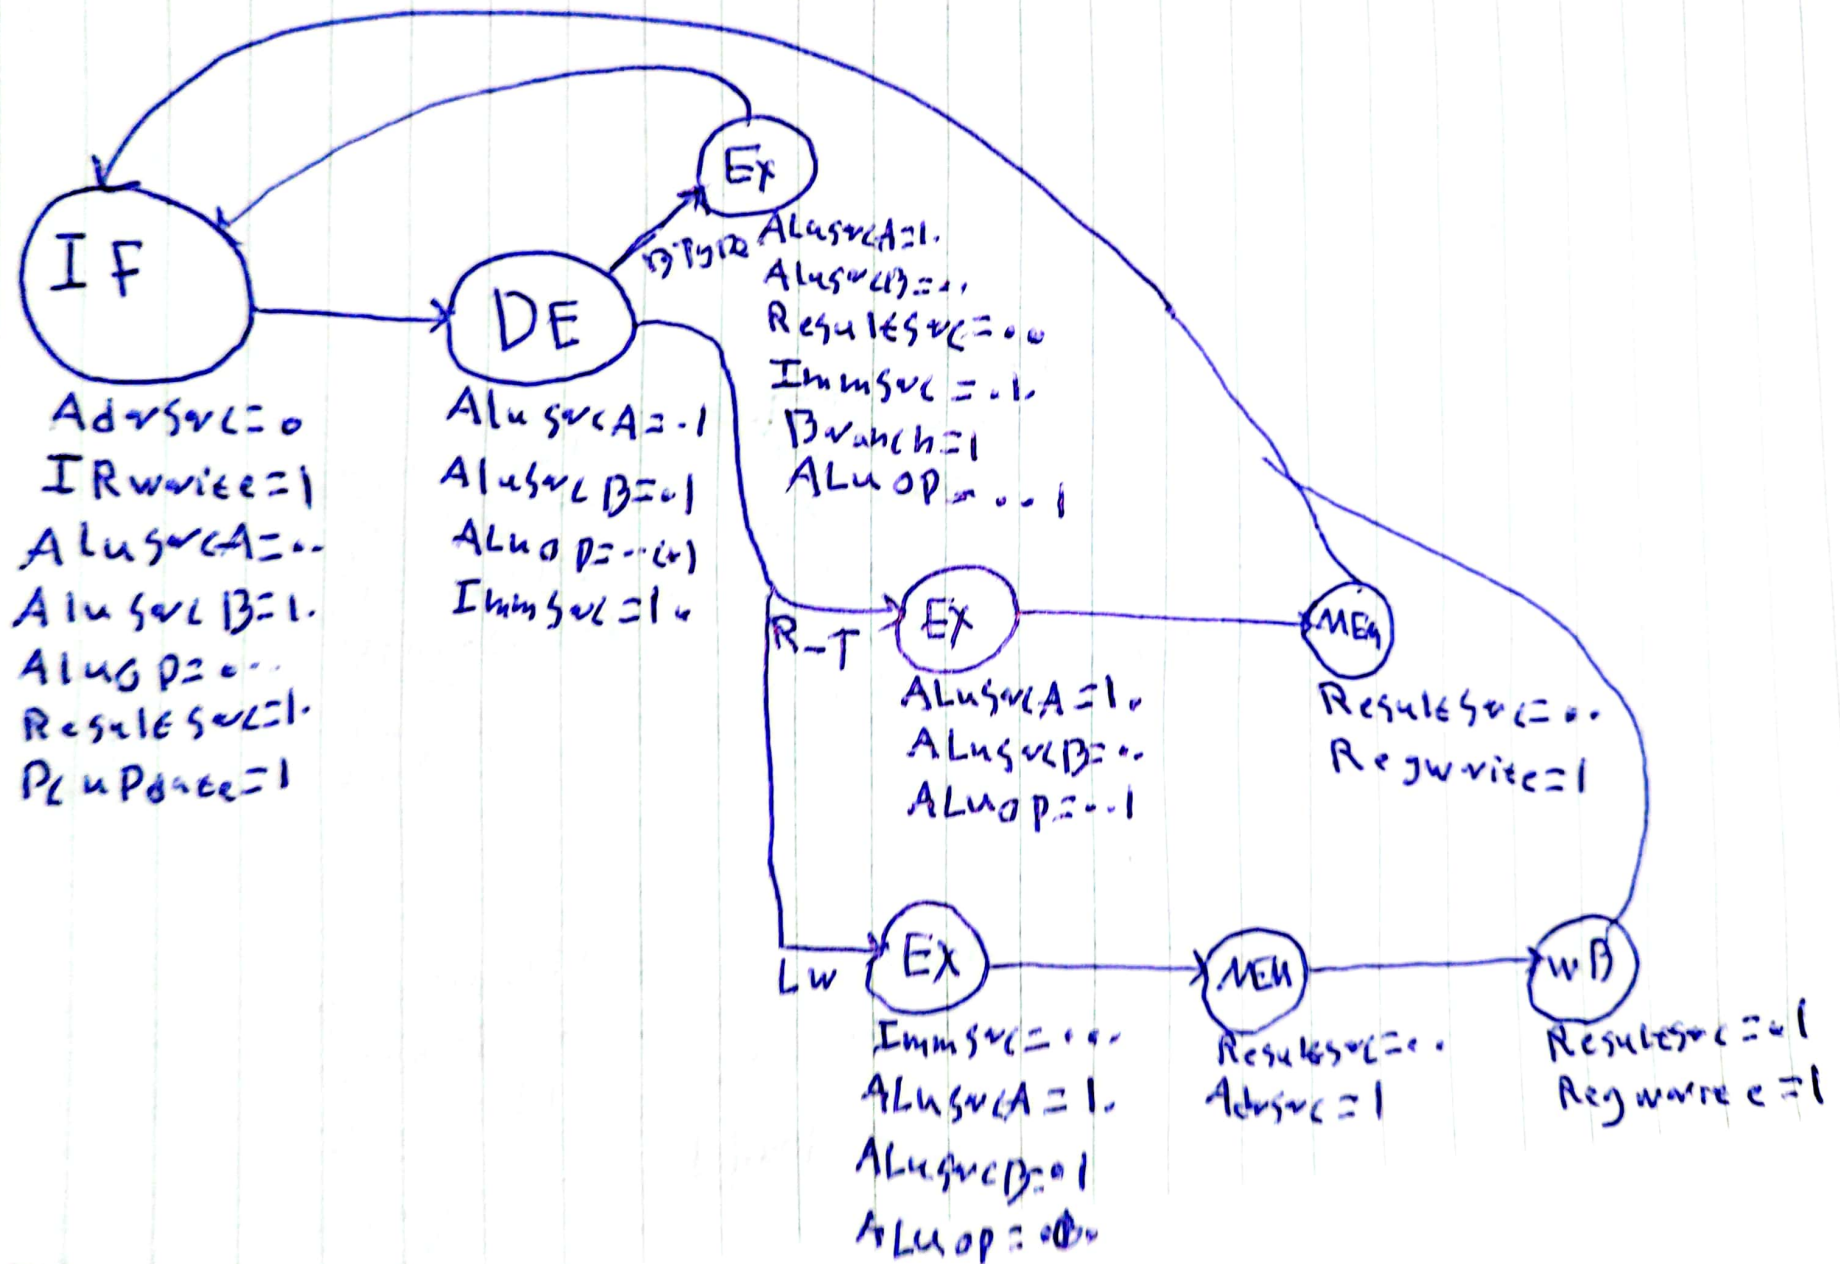 IF
AdrSrc=0
IRwrite=1
ALuSrcA=..
AluSrcB=1.
Aluop=...
ResultSrc=1.
PCupdate=1
DE
AluSrcA=.1
AluSrcB=.1
ALuop=..(+)
ImmSrc=1.
BType
Ex
ALuSrcA=1.
AluSrcB=..
ResultSrc=..
ImmSrc=.1.
Branch=1
ALuop=...1
R-T
EX
ALuSrcA=1.
ALuSrcB=..
ALuop=..1
MEM
ResultSrc=..
Regwrite=1
Lw
EX
ImmSrc=...
ALuSrcA=1.
ALuSrcB=.1
MEM
ResultSrc=..
Adrsrc=1
WB
ResultSrc=.1
Regwrite=1